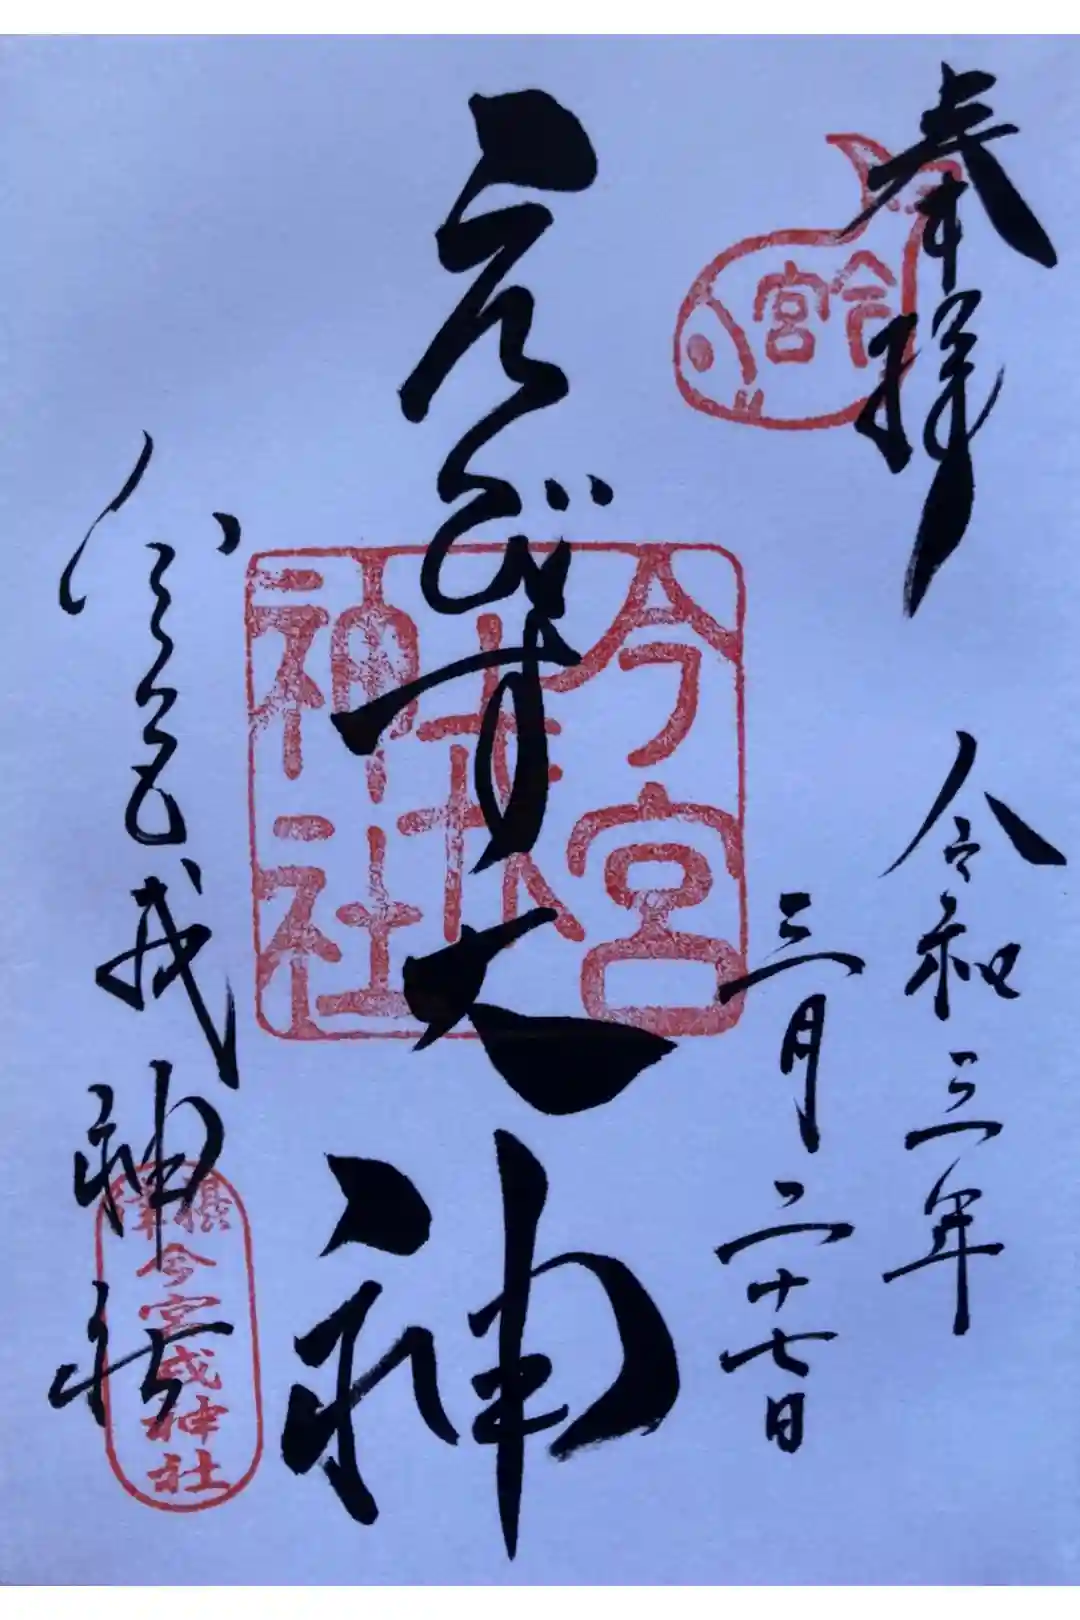 奉拝
今宮
令和三年
三月二十七日
えびす大神
今宮
戎
神社
今宮戎神社
摂津
今宮戎神社